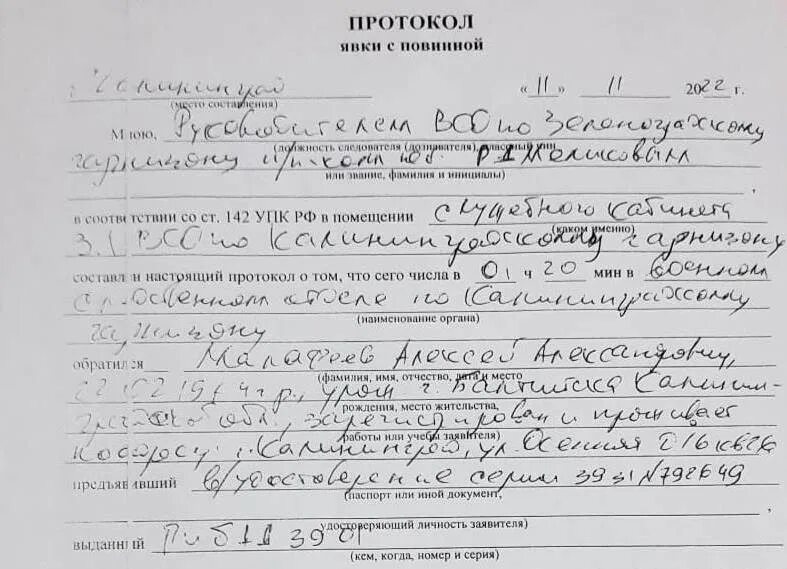 ПРОТОКОЛ
явки с повинной
г. Калининград «11» 11 2022 г.
(место составления)
Мною, Руководителем ВСО по Зеленоградскому
(должность следователя (дознавателя), классный чин
гарнизону п/п-к юст
или звание, фамилия и инициалы)
в соответствии со ст. 142 УПК РФ в помещении служебного кабинета
(каком именно)
ВСО по Калининградскому гарнизону
составлен настоящий протокол о том, что сего числа в 01 ч 20 мин в военном
следственном отделе по Калининградскому
(наименование органа)
гарнизону
обратился Малафеев Алексей Александрович,
(фамилия, имя, отчество, дата и место
г.р., урож. г. Балтийска Калинин-
рождения, место жительства,
градской обл., зарегистрирован и проживает
работы или учебы заявителя)
по адресу: г. Калининград, ул. Осенняя
предъявивший в/удостоверение серии 3931 N792649
(паспорт или иной документ,
удостоверяющий личность заявителя)
выданный 39 01
(кем, когда, номер и серия)